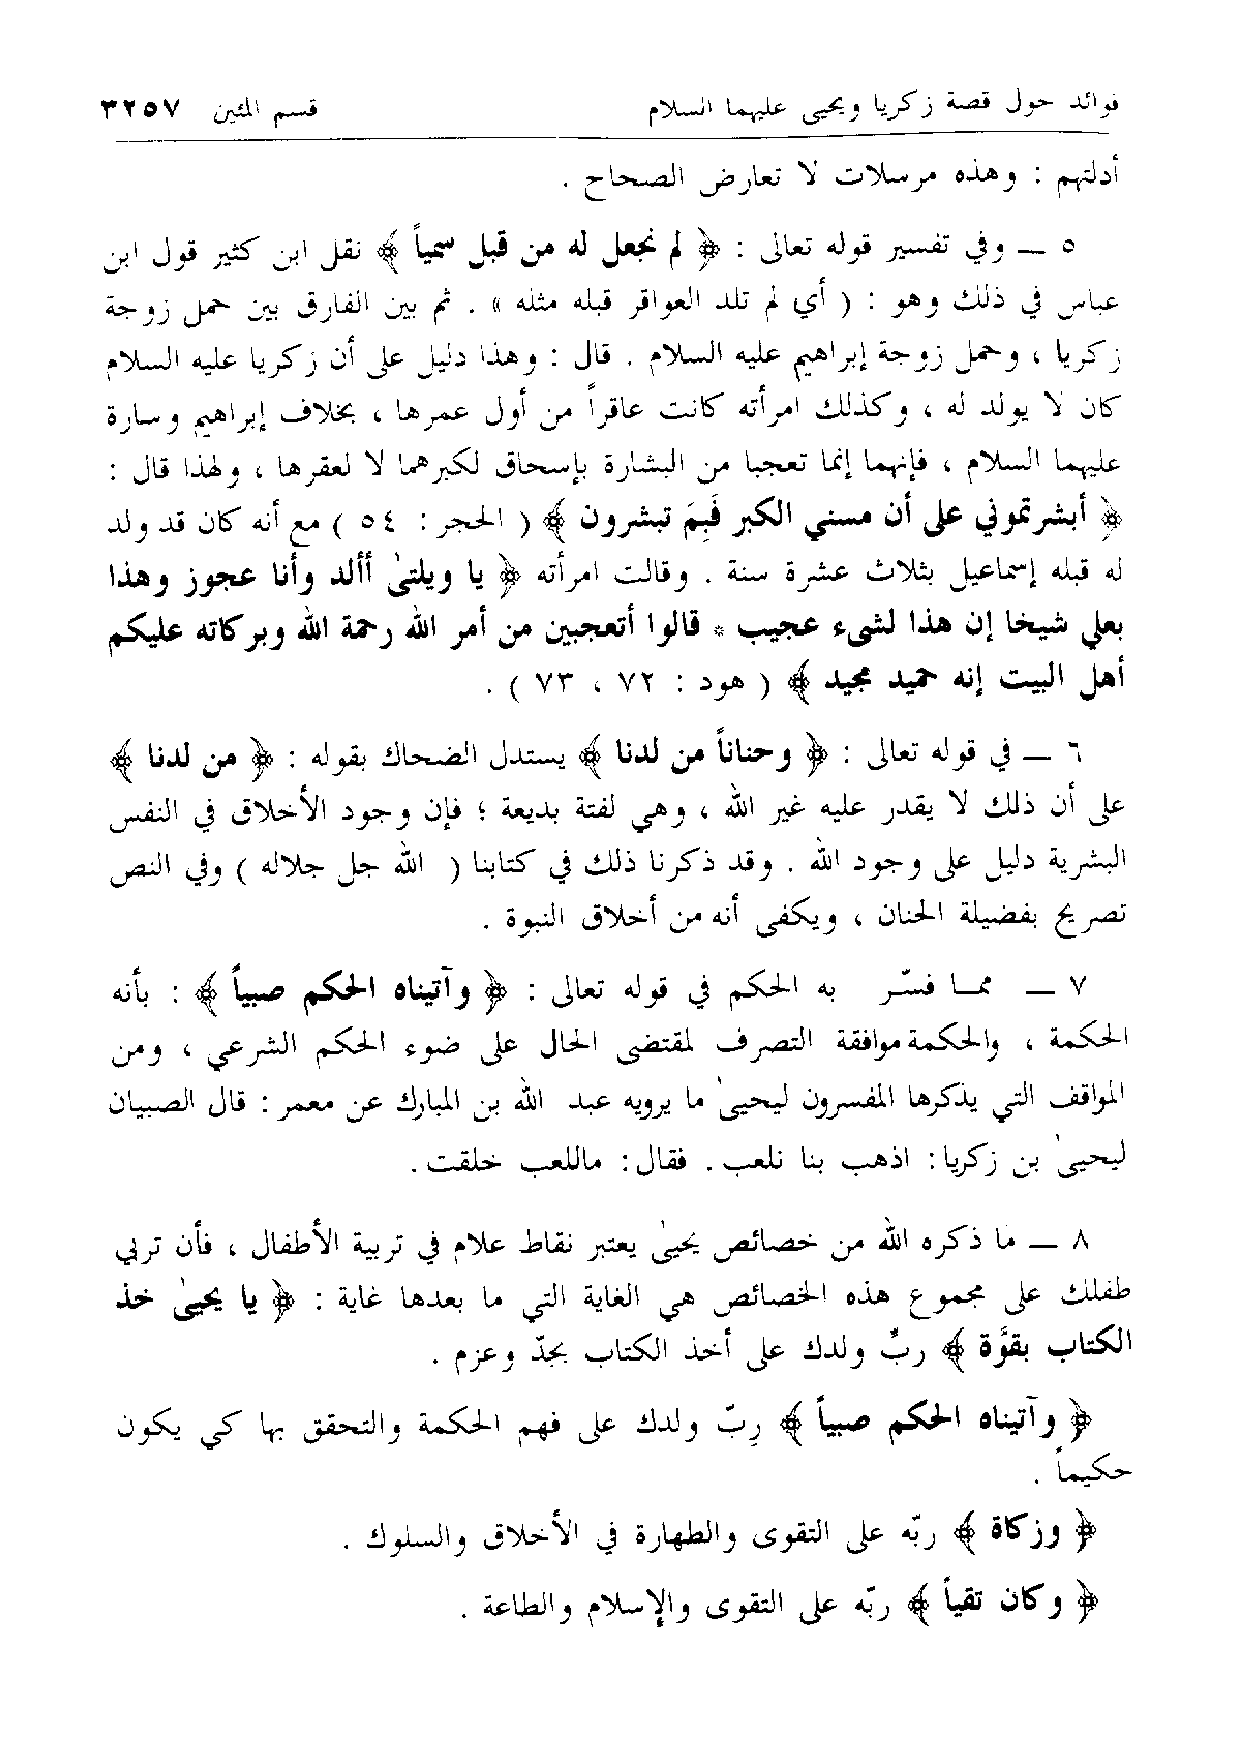 فوائد حول قصة زكريا ويحيى عليهما السلام قسم المئين ٣٢٥٧
أدلتهم : وهذه مرسلات لا تعارض الصحاح .
٥ — وفي تفسير قوله تعالى : ﴿ لم نجعل له من قبل سمياً ﴾ نقل ابن كثير قول ابن
عباس في ذلك وهو : ( أي لم تلد العواقر قبله مثله » . ثم بين الفارق بين حمل زوجة
زكريا ، وحمل زوجة إبراهيم عليه السلام . قال : وهذا دليل على أن زكريا عليه السلام
كان لا يولد له ، وكذلك امرأته كانت عاقراً من أول عمرها ، بخلاف إبراهيم وسارة
عليهما السلام ، فإنهما إنما تعجبا من البشارة بإسحاق لكبرهما لا لعقرها ، ولهذا قال :
﴿ أبشرتموني على أن مسني الكبر فَبِمَ تبشرون ﴾ ( الحجر : ٥٤ ) مع أنه كان قد ولد
له قبله إسماعيل بثلاث عشرة سنة . وقالت امرأته ﴿ يا ويلتىٰ أألد وأنا عجوز وهذا
بعلي شيخا إن هذا لشىء عجيب * قالوا أتعجبين من أمر الله رحمة الله وبركاته عليكم
أهل البيت إنه حميد مجيد ﴾ ( هود : ٧٢ ، ٧٣ ) .
٦ — في قوله تعالى : ﴿ وحناناً من لدنا ﴾ يستدل الضحاك بقوله : ﴿ من لدنا ﴾
على أن ذلك لا يقدر عليه غير الله ، وهي لفتة بديعة ؛ فإن وجود الأخلاق في النفس
البشرية دليل على وجود الله . وقد ذكرنا ذلك في كتابنا ( الله جل جلاله ) وفي النص
تصريح بفضيلة الحنان ، ويكفى أنه من أخلاق النبوة .
٧ — مما فسّر به الحكم في قوله تعالى : ﴿ وآتيناه الحكم صبياً ﴾ : بأنه
الحكمة ، والحكمة موافقة التصرف لمقتضى الحال على ضوء الحكم الشرعي ، ومن
المواقف التي يذكرها المفسرون ليحيىٰ ما يرويه عبد الله بن المبارك عن معمر : قال الصبيان
ليحيىٰ بن زكريا : اذهب بنا نلعب . فقال : ماللعب خلقت .
٨ — ما ذكره الله من خصائص يحيىٰ يعتبر نقاط علام في تربية الأطفال ، فأن تربي
طفلك على مجموع هذه الخصائص هي الغاية التي ما بعدها غاية : ﴿ يا يحيىٰ خذ
الكتاب بقوَّة ﴾ ربِّ ولدك على أخذ الكتاب بجدّ وعزم .
﴿ وآتيناه الحكم صبياً ﴾ رِبّ ولدك على فهم الحكمة والتحقق بها كي يكون
حكيماً .
﴿ وزكاة ﴾ ربّه على التقوى والطهارة في الأخلاق والسلوك .
﴿ وكان تقياً ﴾ ربّه على التقوى والإسلام والطاعة .